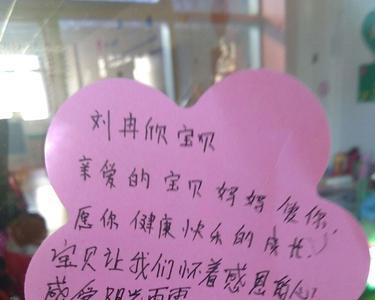 刘冉欣宝贝
亲爱的宝贝妈妈爱你,
愿你健康快乐的成长
宝贝让我们怀着感恩的心
感受阳光雨露